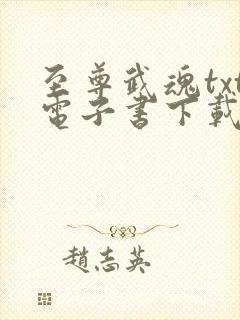 至尊武魂txt
電子書下載
趙志英